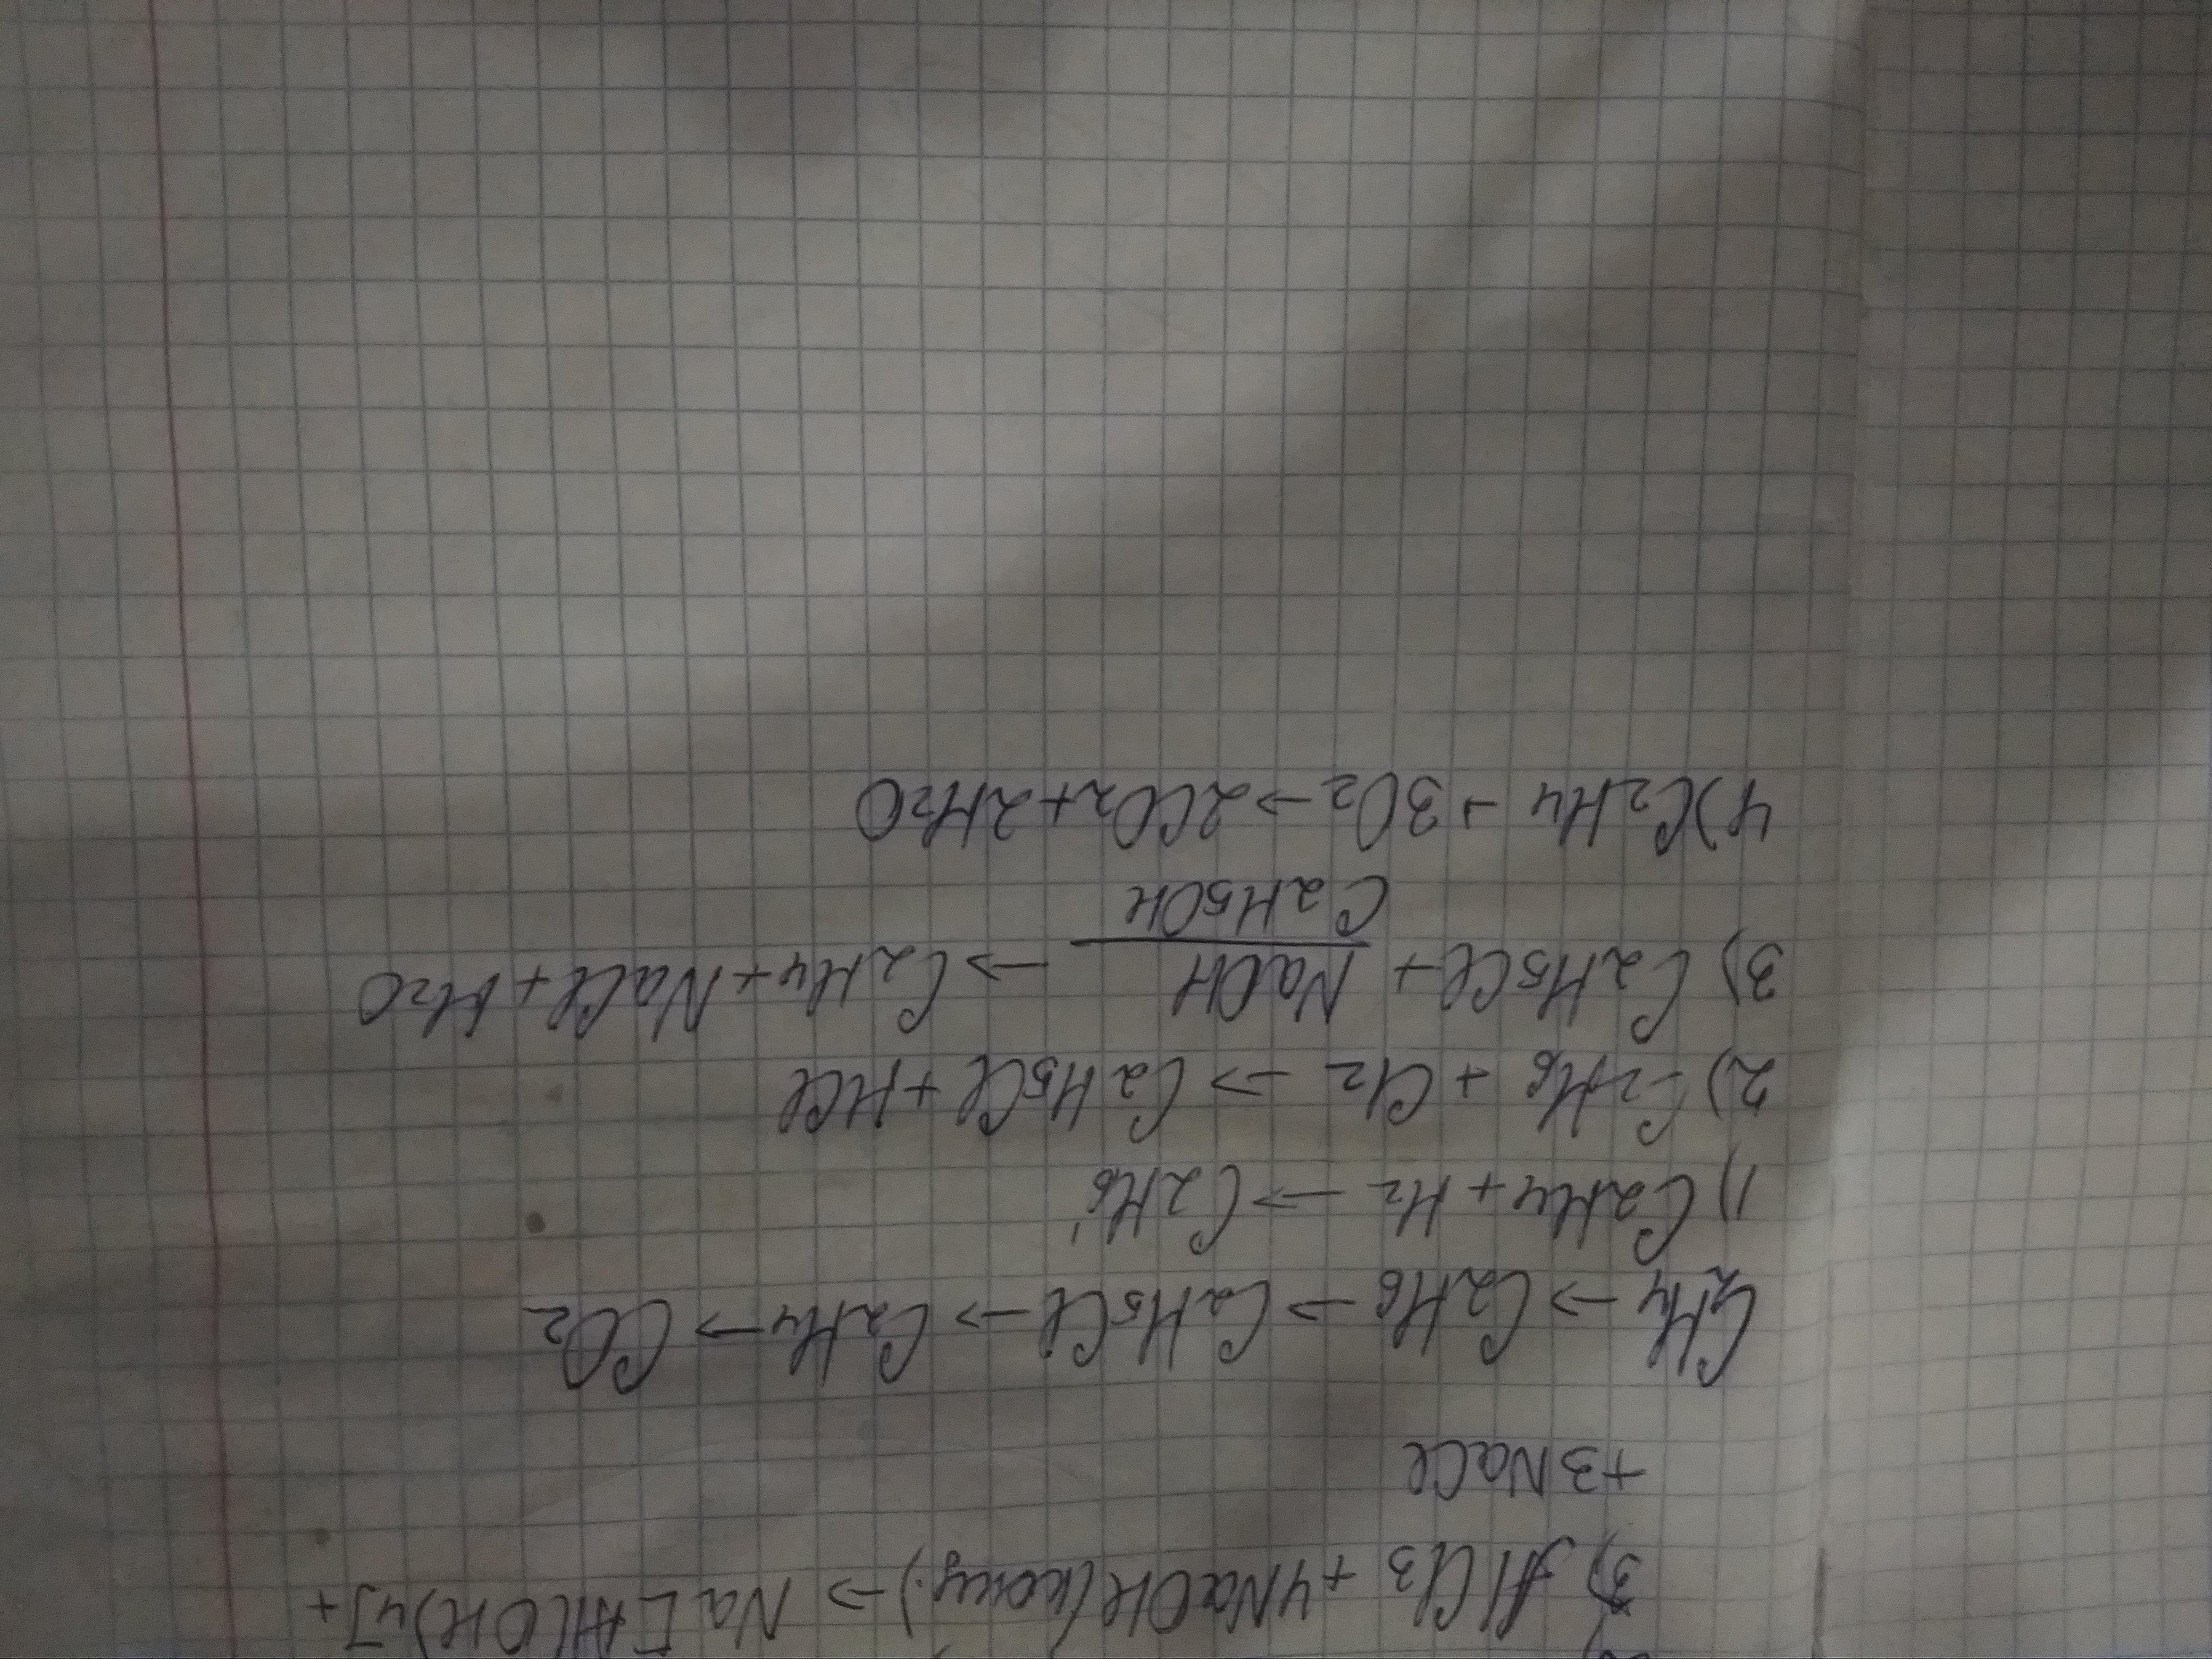 3) AlCl3 + 4NaOH(конц.) → Na[Al(OH)4]+
+3NaCl
C2H4 → C2H6 → C2H5Cl → C2H4 → CO2
1) C2H4 + H2 → C2H6
2) C2H6 + Cl2 → C2H5Cl + HCl
3) C2H5Cl + NaOH → C2H4 + NaCl + H2O
C2H5OH
4) C2H4 + 3O2 → 2CO2 + 2H2O